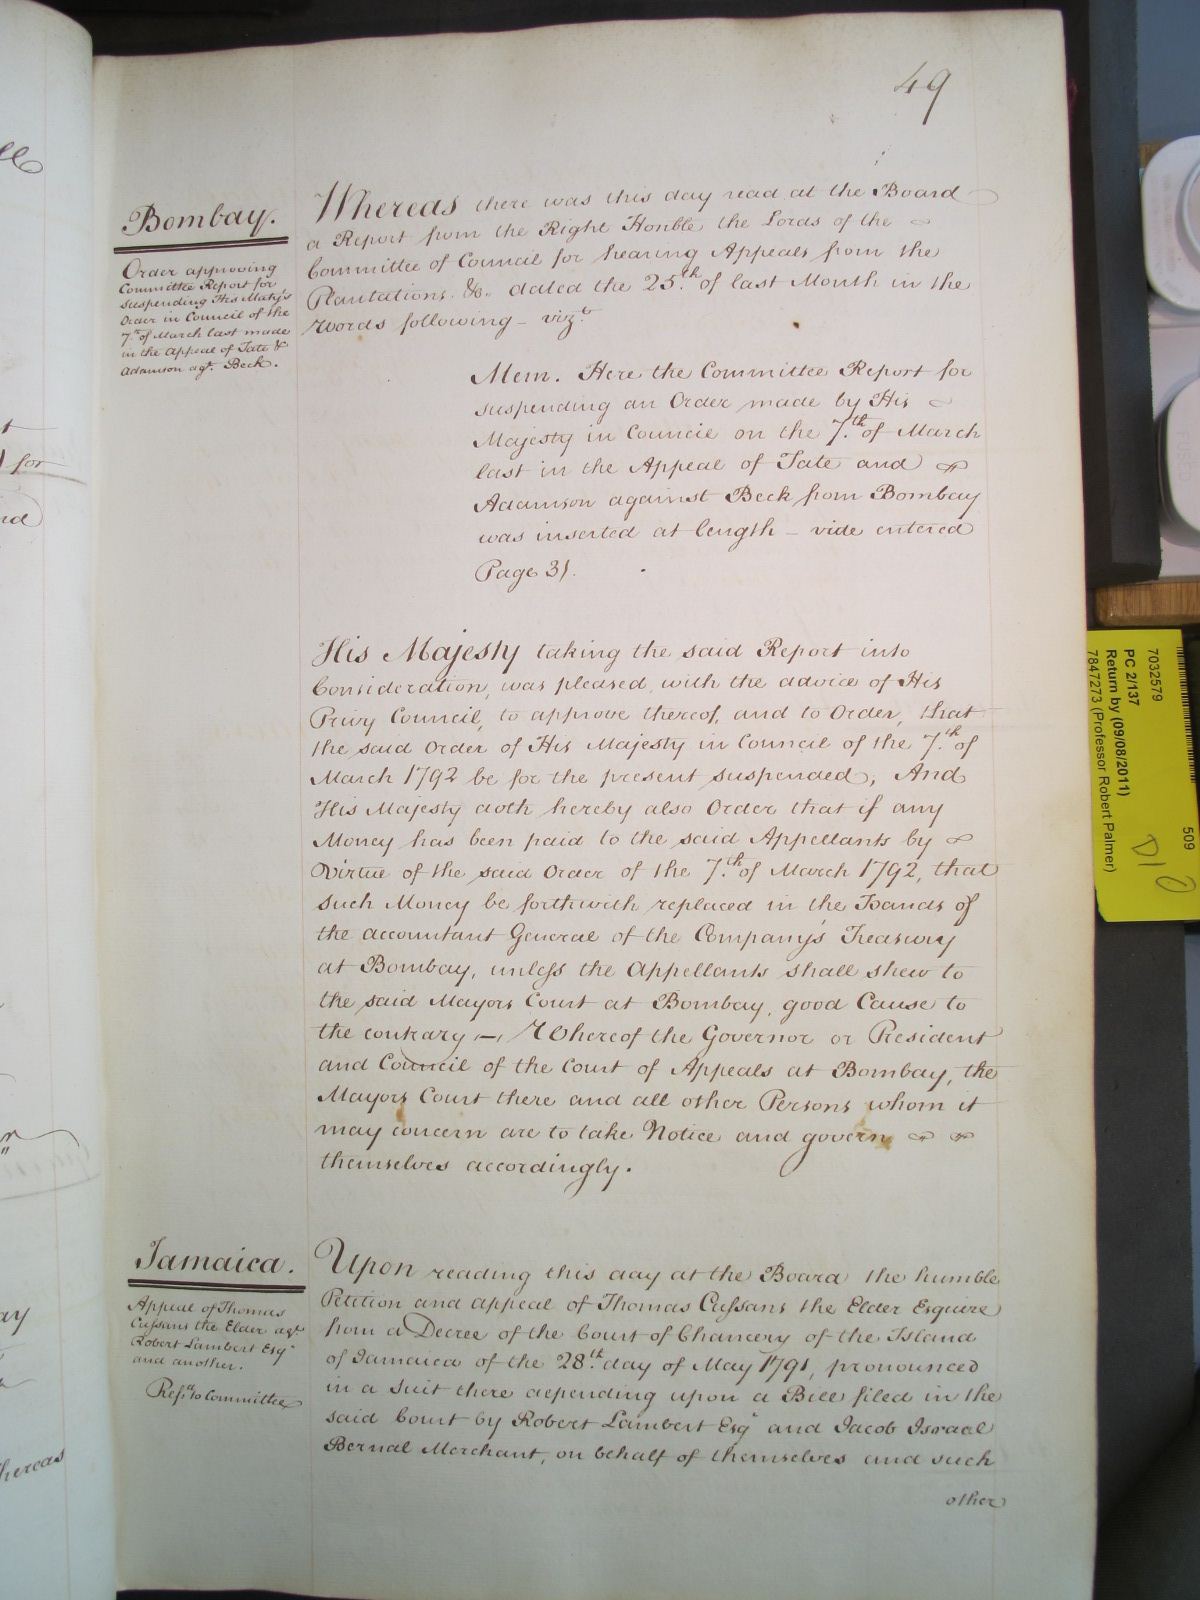 49
Bombay.
Order approving
Committee Report for
suspending His Majty's
Order in Council of the
7th of March last made
in the Appeal of Tate &
Adamson agt. Beck.
Whereas there was this day read at the Board
a Report from the Right Honble the Lords of the
Committee of Council for hearing Appeals from the
Plantations &c. dated the 25th of last Month in the
Words following – vizt
Mem. Here the Committee Report for
suspending an Order made by His
Majesty in Council on the 7th of March
last in the Appeal of Tate and
Adamson against Beck from Bombay
was inserted at length – vide entered
Page 31.
His Majesty taking the said Report into
Consideration, was pleased, with the advice of His
Privy Council, to approve thereof, and to Order, that
the said Order of His Majesty in Council of the 7th of
March 1792 be for the present suspended, And
His Majesty doth hereby also Order that if any
Money has been paid to the said Appellants by
Virtue of the said Order of the 7th of March 1792, that
such Money be forthwith replaced in the Hands of
the accountant General of the Company's Treasury
at Bombay, unless the Appellants shall shew to
the said Mayors Court at Bombay, good Cause to
the contrary –, Whereof the Governor or President
and Council of the Court of Appeals at Bombay, the
Mayors Court there and all other Persons whom it
may concern are to take Notice and govern
themselves accordingly.
Jamaica.
Appeal of Thomas
Cussans the Elder agt
Robert Lambert Esqr
and another.
Refd to Committee
Upon reading this day at the Board the humble
Petition and appeal of Thomas Cussans the Elder Esquire
from a Decree of the Court of Chancery of the Island
of Jamaica of the 28th day of May 1791, pronounced
in a Suit there depending upon a Bill filed in the
said Court by Robert Lambert Esqr and Jacob Israel
Bernal Merchant, on behalf of themselves and such
other
7032579
509
PC 2/137
Return by (09/08/2011)
7847273 (Professor Robert Palmer)
for
hereas